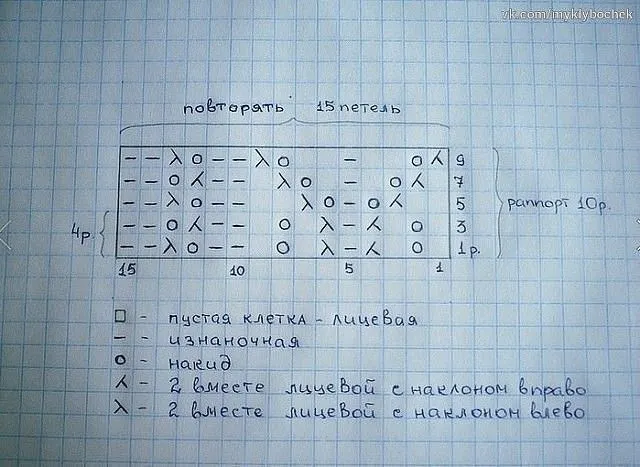 vk.com/myklybochek
повторять 15 петель
− − λ о − − λ о − о ⅄ 9
− − о ⅄ − − λ о − о ⅄ 7
− − λ о − − λ о − о ⅄ 5 раппорт 10р.
4р. − − о ⅄ − − о λ − ⅄ о 3
− − λ о − − о λ − ⅄ о 1р.
15 10 5 1
□ - пустая клетка - лицевая
− - изнаночная
о - накид
⅄ - 2 вместе лицевой с наклоном вправо
λ - 2 вместе лицевой с наклоном влево